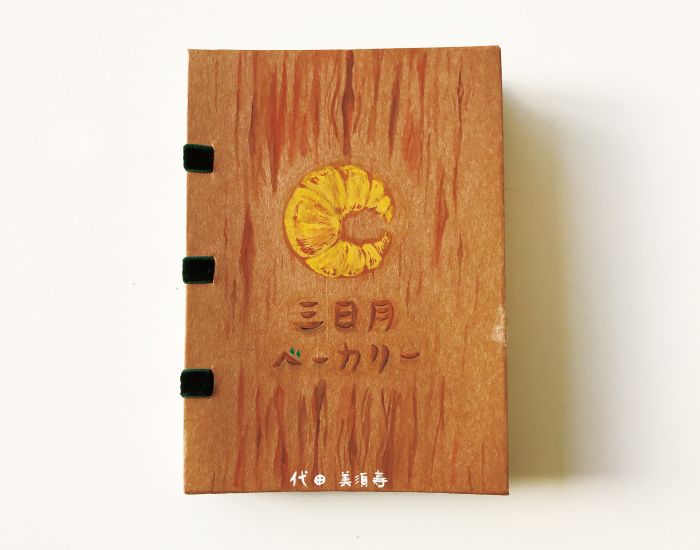 三日月
ベーカリー
代田 美須寿